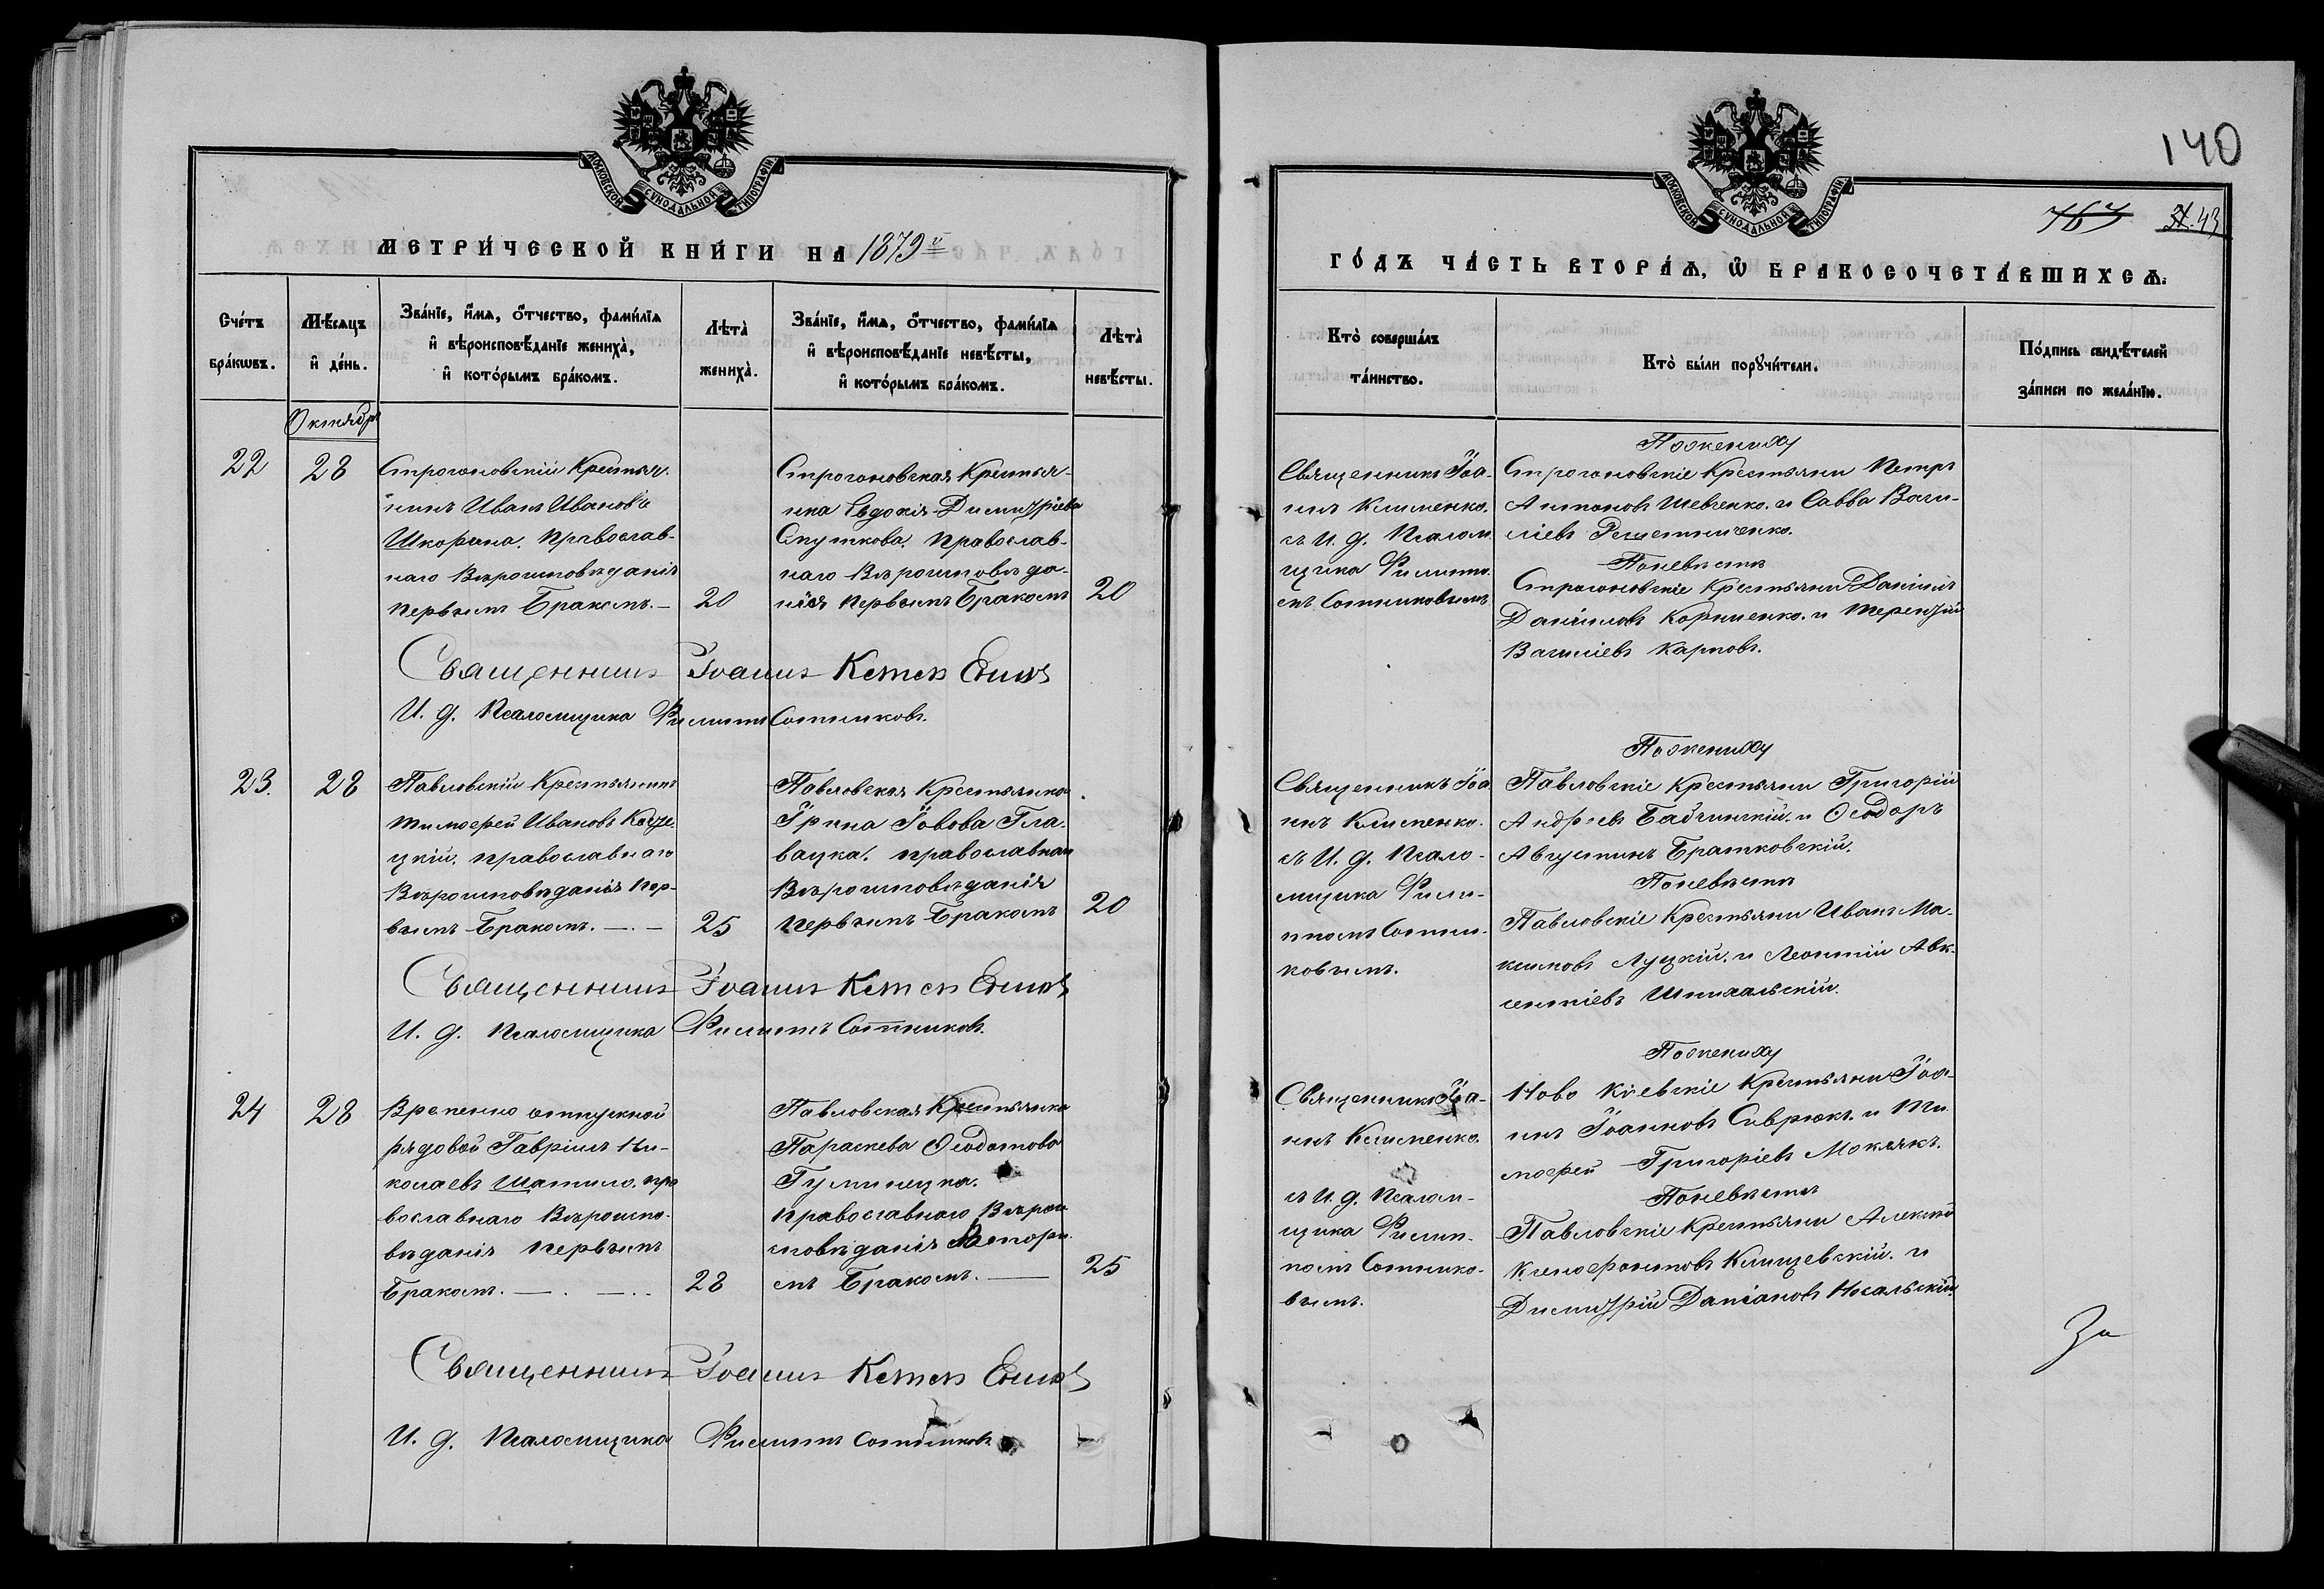 МОСКОВСКОЙ СУНОДАЛЬНОЙ ТИПОГРАФІИ
МЕТРИ́ЧЕСКОЙ КНИ́ГИ НА 1879й
Сче́тъ бра́кѡвъ.
Мѣ́сяцъ и҆ де́нь.
Зва́нїе, и҆́мѧ, ѻ҆́тчество, фами́лїѧ
и҆ вѣроисповѣ́данїе жениха̀,
и҆ кото́рымъ бра́комъ.
Лѣта̀ жениха̀.
Зва́нїе, и҆́мѧ, ѻ҆́тчество, фами́лїѧ
и҆ вѣроисповѣ́данїе невѣ́сты,
и҆ кото́рымъ бра́комъ.
Лѣта̀ невѣ́сты.
Октября
22
28
Строгоновскій Крестья-
нинъ Иванъ Ивановъ
православ-
наго Вѣроисповѣданія
первымъ Бракомъ.—
20
Строгоновская Крестьян-
ка Евдокія Димитріева
православ-
наго Вѣроисповѣда-
нія первымъ Бракомъ
20
Священникъ Іоаннъ
И. д. Псаломщика Филиппъ Сотниковъ.
23.
28
Павловскій Крестьянинъ
Тимофей Ивановъ
православнаго
Вѣроисповѣданія пер-
вымъ Бракомъ. —.—
25
Павловская Крестьянка
Ірина Іовова Гла-
вацка. православнаго
Вѣроисповѣданія
первымъ Бракомъ
20
Священникъ Іоаннъ
И. д. Псаломщика Филиппъ Сотниковъ.
24
28
Временно отпускной
рядовой Гавріилъ Ни-
колаевъ Шатило. пра-
вославнаго Вѣроиспо-
вѣданія первымъ
Бракомъ. —. —..
28
Павловская Крестьянка
Параскева Ѳеодотова
Гуминецка.
православнаго Вѣрои-
сповѣданія Втори-
мъ Бракомъ. —
25
Священникъ Іоаннъ
И. д. Псаломщика Филиппъ Сотниковъ
140
МОСКОВСКОЙ СУНОДАЛЬНОЙ ТИПОГРАФІИ
43
ГО́ДЪ ЧА́СТЬ ВТОРА́Ѧ, Ѽ БРАКОСОЧЕТА́ВШИХСѦ.
Кто̀ соверша́лъ
та́инство.
Кто̀ бы́ли порꙋчи́тели.
По́дпись свидѣ́телей
за́писи по жела́нїю.
Священникъ Іоа-
ннъ Клименко.
съ И. д. Псалом-
щика Филиппо-
мъ Сотниковымъ
По женихѹ
Строгоновскіе Крестьяни Петръ
Антоновъ Шевченко. и Савва Васи-
ліевъ Решетниченко.
По невѣстѣ
Строгоновскіе Крестьяни Даніилъ
Даніиловъ Корниенко. и Терентій
Василіевъ Карповъ.
Священникъ Іоа-
ннъ Клименко.
съ И. д. Псало-
мщика Фили-
ппомъ Сотни-
ковымъ.
По женихѹ
Павловскіе Крестьяни Григорій
Андреевъ и Ѳеодоръ
Августинъ Братковскій.
По невѣстѣ
Павловскіе Крестьяни Иванъ Ма-
ксимовъ Луцкій. и Леонтій Авк-
сентіевъ Шпихальскій.
Священникъ Іоа-
ннъ Клименко.
съ И. д. Псалом-
щика Филип-
помъ Сотнико-
вымъ.
По женихѹ
Ново Кіевскіе Крестьяни Іоа-
ннъ Іоанновъ Саврюкъ. и Ти-
мофей Григоріевъ Мокеякъ.
По невѣстѣ
Павловскіе Крестьяни Алексѣй
Ксенофонтовъ Клищевскій. и
Димитрій Даміановъ Носальскій.